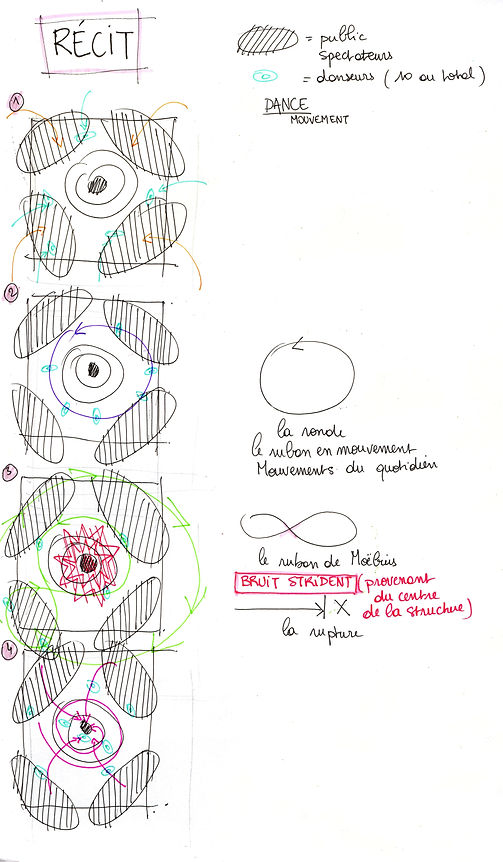 RÉCIT
= public
spectateurs
= danseurs (10 au total)
DANCE
MOUVEMENT
1
2
la ronde
le ruban en mouvement
Mouvements du quotidien
3
le ruban de Moëbius
BRUIT STRIDENT (provenant
du centre
de la structure)
X
la rupture
4